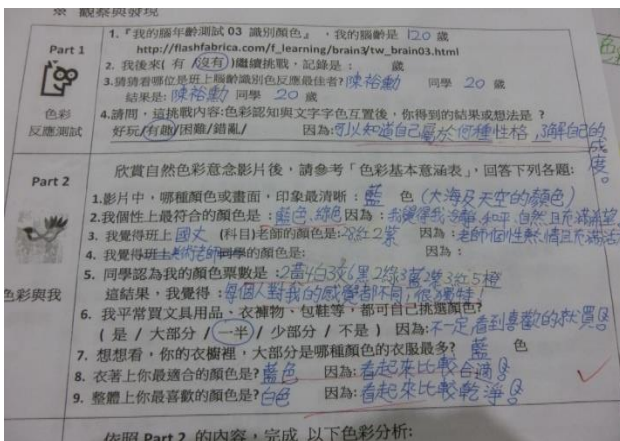 ※ 觀察與發現
Part 1
色彩
反應測試
1.『我的腦年齡測試 03 識別顏色』,我的腦齡是 120 歲
http://flashfabrica.com/f_learning/brain3/tw_brain03.html
2. 我後來( 有 /沒有)繼續挑戰,記錄是: 歲
3.猜猜看哪位是班上腦齡識別色反應最佳者? 陳裕勳 同學 20 歲
結果是: 陳裕勳 同學 20 歲
4.請問,這挑戰內容:色彩認知與文字字色互置後,你得到的結果或想法是?
好玩/有趣/困難/錯亂/ 因為:可以知道自己屬於何種性格,了解自己的
成度。
Part 2
色彩與我
欣賞自然色彩意念影片後,請參考「色彩基本意涵表」,回答下列各題:
1.影片中,哪種顏色或畫面,印象最清晰: 藍 色 (大海及天空的顏色)
2.我個性上最符合的顏色是:藍色、綠色 因為:我覺得我冷靜、和平、自然且充滿希望
3. 我覺得班上 國文 (科目)老師的顏色是:28紅2紫 因為:老師個性熱情且充滿活
4. 我覺得班上美術老師同學的顏色是: 因為:
5. 同學認為我的顏色票數是:2黃4白3灰6黑2綠3藍2紫3紅5橙
這結果,我覺得:每個人對我的感覺都不同,很獨特!
6. 我平常買文具用品、衣褲物、包鞋等,都可自己挑選顏色?
( 是 / 大部分 / 一半 / 少部分 / 不是 ) 因為:不一定,看到喜歡的就買
7. 想想看,你的衣櫥裡,大部分是哪種顏色的衣服最多? 藍 色
8. 衣著上你最適合的顏色是?藍色 因為:看起來比較合適
9. 整體上你最喜歡的顏色是?白色 因為:看起來比較乾淨
依照 Part 2 的內容,完成 以下色彩分析: